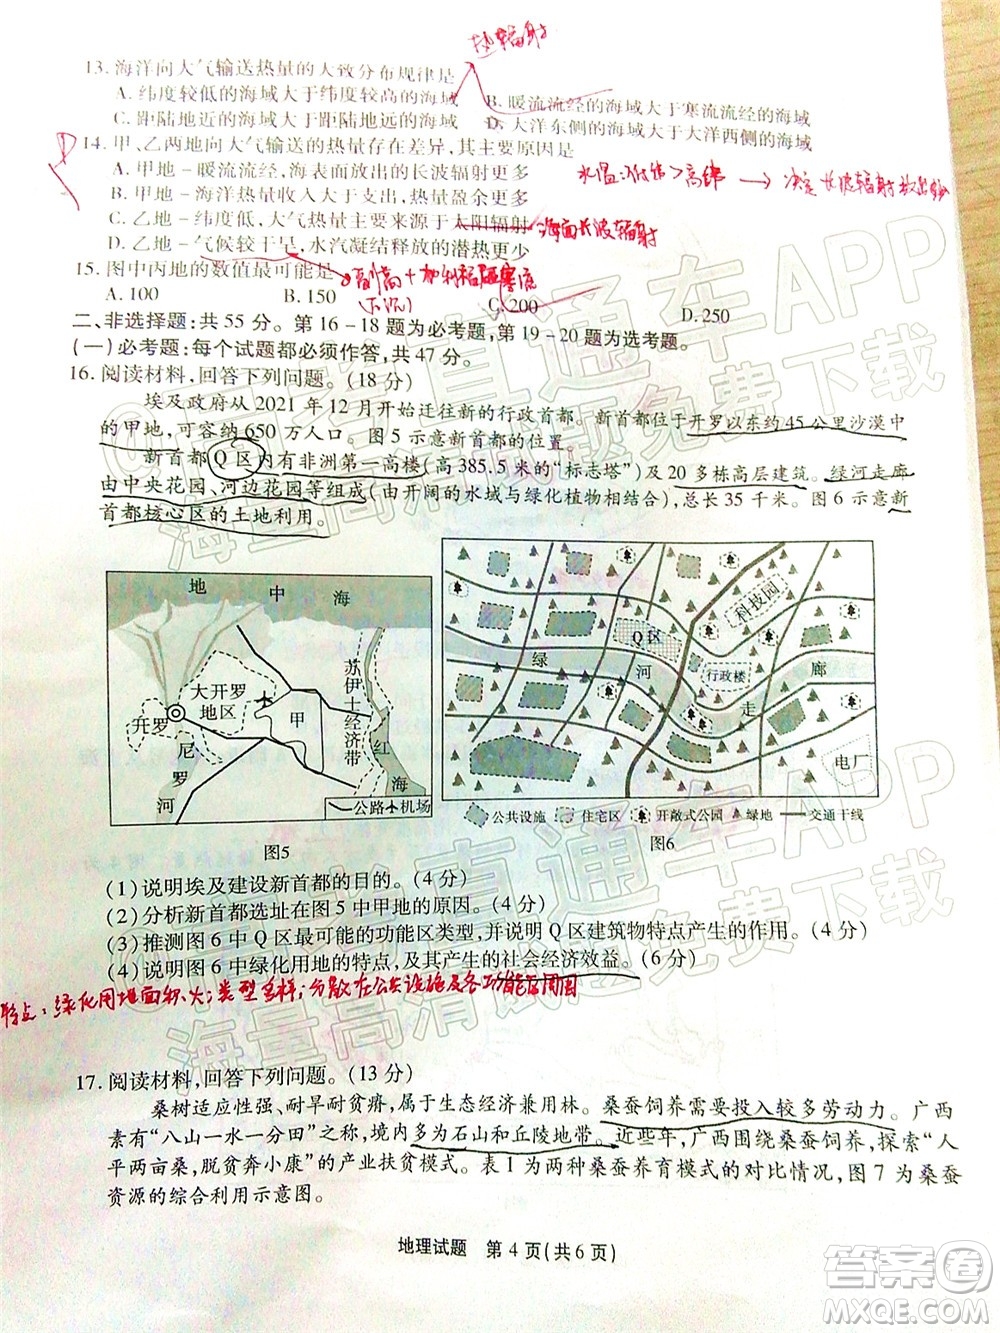 热辐射
13.海洋向大气输送热量的大致分布规律是
A.纬度较低的海域大于纬度较高的海域 B.暖流流经的海域大于寒流流经的海域
C.距陆地近的海域大于距陆地远的海域 D.大洋东侧的海域大于大洋西侧的海域
14.甲、乙两地向大气输送的热量存在差异,其主要原因是
A.甲地-暖流流经,海表面放出的长波辐射更多
水温:低纬>高纬 → 决定长波辐射放出多少
B.甲地-海洋热量收入大于支出,热量盈余更多
C.乙地-纬度低,大气热量主要来源于太阳辐射 海面长波辐射
D.乙地-气候较干旱,水汽凝结释放的潜热更少
15.图中丙地的数值最可能是
副高+加利福尼亚寒流
(下沉)
A.100 B.150 C.200 D.250
二、非选择题:共55分。第16-18题为必考题,第19-20题为选考题。
(一)必考题:每个试题都必须作答,共47分。
16.阅读材料,回答下列问题。(18分)
埃及政府从2021年12月开始迁往新的行政首都。新首都位于开罗以东约45公里沙漠中
的甲地,可容纳650万人口。图5示意新首都的位置。
新首都Q区内有非洲第一高楼(高385.5米的“标志塔”)及20多栋高层建筑。绿河走廊
由中央花园、河边花园等组成(由开阔的水域与绿化植物相结合),总长35千米。图6示意新
首都核心区的土地利用。
地中海
大开罗地区
开罗
甲
尼罗河
苏伊士经济带
红海
公路 机场
图5
科技园
Q区
行政楼
绿河走廊
电厂
公共设施 住宅区 开敞式公园 绿地 交通干线
图6
(1)说明埃及建设新首都的目的。(4分)
(2)分析新首都选址在图5中甲地的原因。(4分)
(3)推测图6中Q区最可能的功能区类型,并说明Q区建筑物特点产生的作用。(4分)
(4)说明图6中绿化用地的特点,及其产生的社会经济效益。(6分)
特点:绿化用地面积大;类型多样;分散在公共设施及各功能区周围
17.阅读材料,回答下列问题。(13分)
桑树适应性强、耐旱耐贫瘠,属于生态经济兼用林。桑蚕饲养需要投入较多劳动力。广西
素有“八山一水一分田”之称,境内多为石山和丘陵地带。近些年,广西围绕桑蚕饲养,探索“人
平两亩桑,脱贫奔小康”的产业扶贫模式。表1为两种桑蚕养育模式的对比情况,图7为桑蚕
资源的综合利用示意图。
地理试题 第4页(共6页)
高考直通车APP
海量高清试题免费下载
答案圈
MXQE.COM